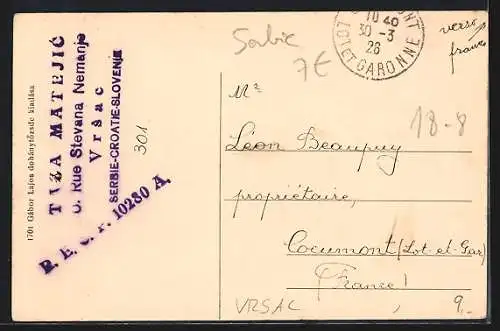 1701 Gábor Lajos dohánytőzsde kiadása
TYZA MATEJIĆ
Rue Stevana Nemanje
Vršac
SERBIE-CROATIE-SLOVENIE
B. E. C. P. 10280 A.
301
Serbie
7€
LOT ET GARONNE
10 40
30 -3
26
verso
franc
18-8
Mr
Léon Beaupuy
propriétaire,
Cocumont (Lot-et-Gar)
(France)
VRSAC
9.-